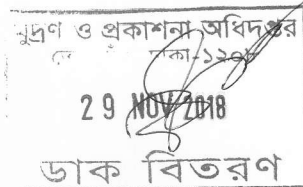 মুদ্রণ ও প্রকাশনা অধিদপ্তর
ঢাকা-১২০৮
29 NOV 2018
ডাক বিতরণ